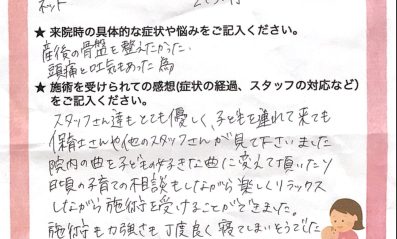 ネット
★ 来院時の具体的な症状や悩みをご記入ください。
産後の骨盤を整えたかった.
頭痛と吐気もあった為
★ 施術を受けられての感想(症状の経過、スタッフの対応など)
をご記入ください。
スタッフさん達もとても優しく、子どもを連れて来ても
保育士さんや他のスタッフさんが見て下さいました
院内の曲を子どもの好きな曲に変えて頂いたり
日頃の子育ての相談もしながら楽しくリラックス
しながら施術を受けることができました。
施術も力強さも丁度良く寝てしまいそうでした